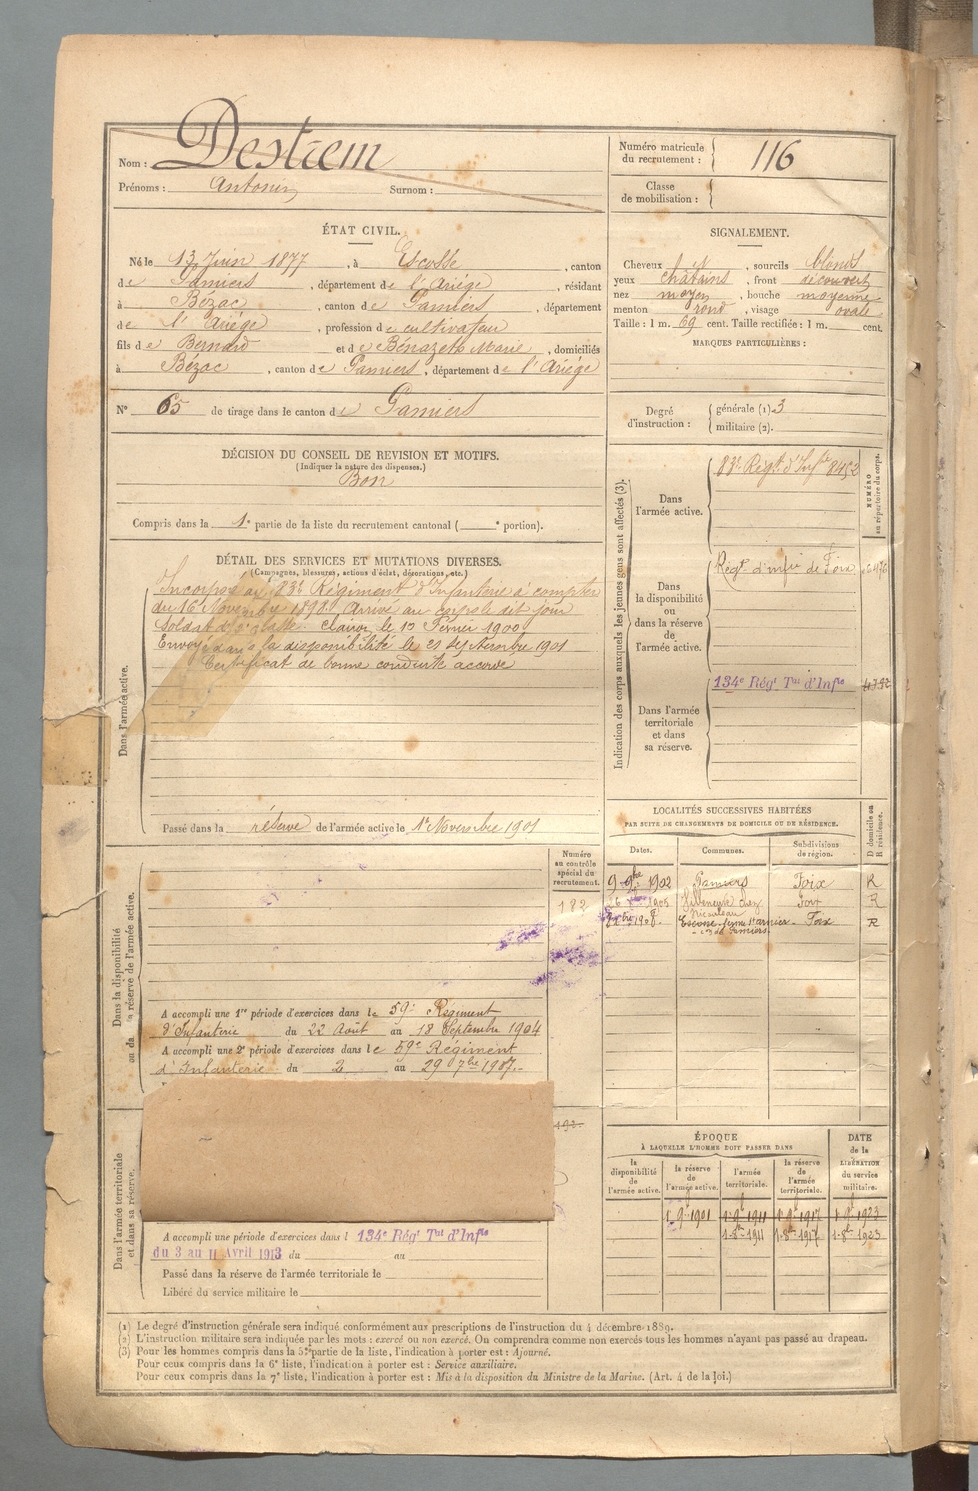 Nom : Destrem
Prénoms : Antonin Surnom :
Numéro matricule du recrutement : 116
Classe de mobilisation :
ÉTAT CIVIL.
Né le 13 Juin 1877, à Escosse, canton
de Pamiers, département de l'Ariége, résidant
à Bézac, canton de Pamiers, département
de l'Ariége, profession de cultivateur
fils de Bernard et de Bénazeth Marie, domiciliés
à Bézac, canton de Pamiers, département de l'Ariége
N° 65 de tirage dans le canton de Pamiers
SIGNALEMENT.
Cheveux sourcils blonds
yeux chatains, front découvert
nez moyen, bouche moyenne
menton rond, visage ovale
Taille : 1 m. 69 cent. Taille rectifiée : 1 m. cent.
MARQUES PARTICULIÈRES :
Degré d'instruction : générale (1). 3
militaire (2).
DÉCISION DU CONSEIL DE REVISION ET MOTIFS.
(Indiquer la nature des dispenses.)
Bon
Compris dans la 1e partie de la liste du recrutement cantonal ( e portion).
DÉTAIL DES SERVICES ET MUTATIONS DIVERSES.
(Campagnes, blessures, actions d'éclat, décorations, etc.)
Dans l'armée active.
Incorporé au 83e Régiment d'Infanterie à compter
du 16 Novembre 1898. Arrivé au corps le dit jour
Soldat de 2e classe. Clairon le 10 Février 1900
Envoyé dans la disponibilité le 21 Septembre 1901
Certificat de bonne conduite accordé
Passé dans la réserve de l'armée active le 1er Novembre 1901
Indication des corps auxquels les jeunes gens sont affectés (3).
NUMÉRO au répertoire du corps.
Dans l'armée active.
83e Régt. d'Infie 8452
Dans la disponibilité ou dans la réserve de l'armée active.
Régt d'Infie de Foix
Dans l'armée territoriale et dans sa réserve.
134e Régt Tal d'Infie
LOCALITÉS SUCCESSIVES HABITÉES
PAR SUITE DE CHANGEMENTS DE DOMICILE OU DE RÉSIDENCE.
D domicile ou R résidence.
Dates. Communes. Subdivisions de région.
9 9bre 1902 Pamiers Foix R
1905 Foix R
1908 Escosse Foix R
Numéro au contrôle spécial du recrutement.
182
Dans la disponibilité ou dans la réserve de l'armée active.
A accompli une 1re période d'exercices dans le 59e Régiment
d'Infanterie du 22 Août au 18 Septembre 1904
A accompli une 2e période d'exercices dans le 59e Régiment
d'Infanterie du 2 au 29 7bre 1907.
Dans l'armée territoriale et dans sa réserve.
A accompli une période d'exercices dans l 134e Régt Tal d'Infie
du 3 au 11 Avril 1913 du au
Passé dans la réserve de l'armée territoriale le
Libéré du service militaire le
ÉPOQUE
À LAQUELLE L'HOMME DOIT PASSER DANS
DATE de la LIBÉRATION du service militaire.
la disponibilité de l'armée active. la réserve de l'armée active. l'armée territoriale. la réserve de l'armée territoriale.
1901 1911 1917 1923
1911 1917 1923
(1) Le degré d'instruction générale sera indiqué conformément aux prescriptions de l'instruction du 4 décembre 1889.
(2) L'instruction militaire sera indiquée par les mots : exercé ou non exercé. On comprendra comme non exercés tous les hommes n'ayant pas passé au drapeau.
(3) Pour les hommes compris dans la 5e partie de la liste, l'indication à porter est : Ajourné.
Pour ceux compris dans la 6e liste, l'indication à porter est : Service auxiliaire.
Pour ceux compris dans la 7e liste, l'indication à porter est : Mis à la disposition du Ministre de la Marine. (Art. 4 de la loi.)